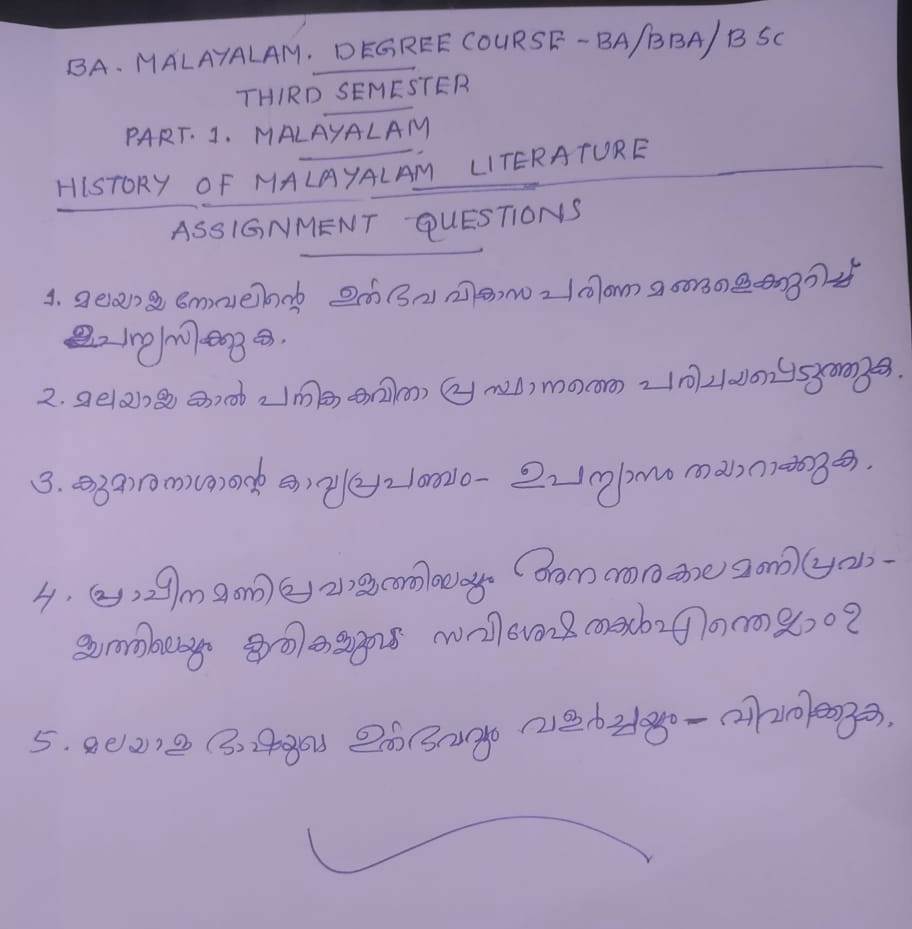 BA. MALAYALAM. DEGREE COURSE - BA/BBA/B SC
THIRD SEMESTER
PART. 1. MALAYALAM
HISTORY OF MALAYALAM LITERATURE
ASSIGNMENT QUESTIONS
1. മലയാള നോവലിന്റെ ഉത്ഭവ വികാസ പരിണാമങ്ങളെക്കുറിച്ച്
ഉപന്യസിക്കുക.
2. മലയാള കാൽപനിക കവിതാ പ്രസ്ഥാനത്തെ പരിചയപ്പെടുത്തുക.
3. കുമാരനാശാന്റെ കാവ്യപ്രപഞ്ചം - ഉപന്യാസം തയാറാക്കുക.
4. പ്രാചീന മണിപ്രവാളത്തിലെയും അനന്തരകാല മണിപ്രവാ-
ളത്തിലെയും കൃതികളുടെ സവിശേഷതകൾ എന്തെല്ലാം?
5. മലയാള ഭാഷയുടെ ഉത്ഭവവും വളർച്ചയും - വിവരിക്കുക.